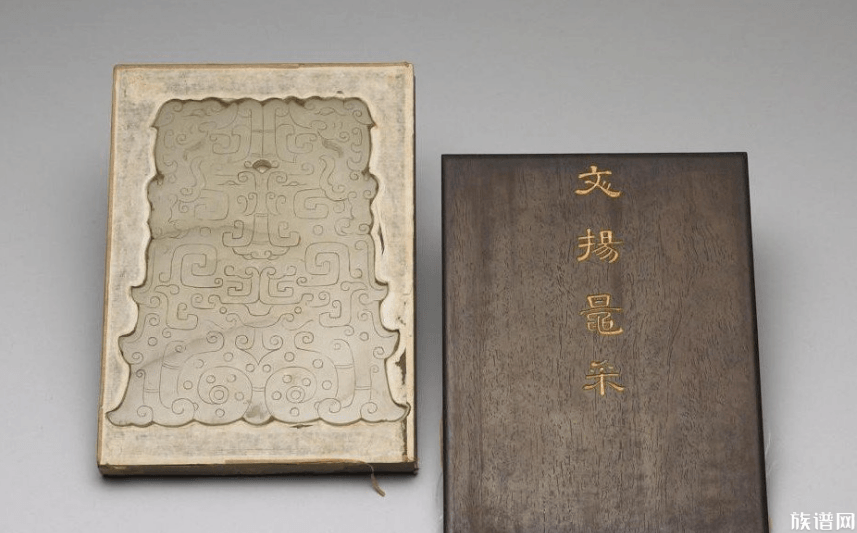 文揚鼂采
族谱网